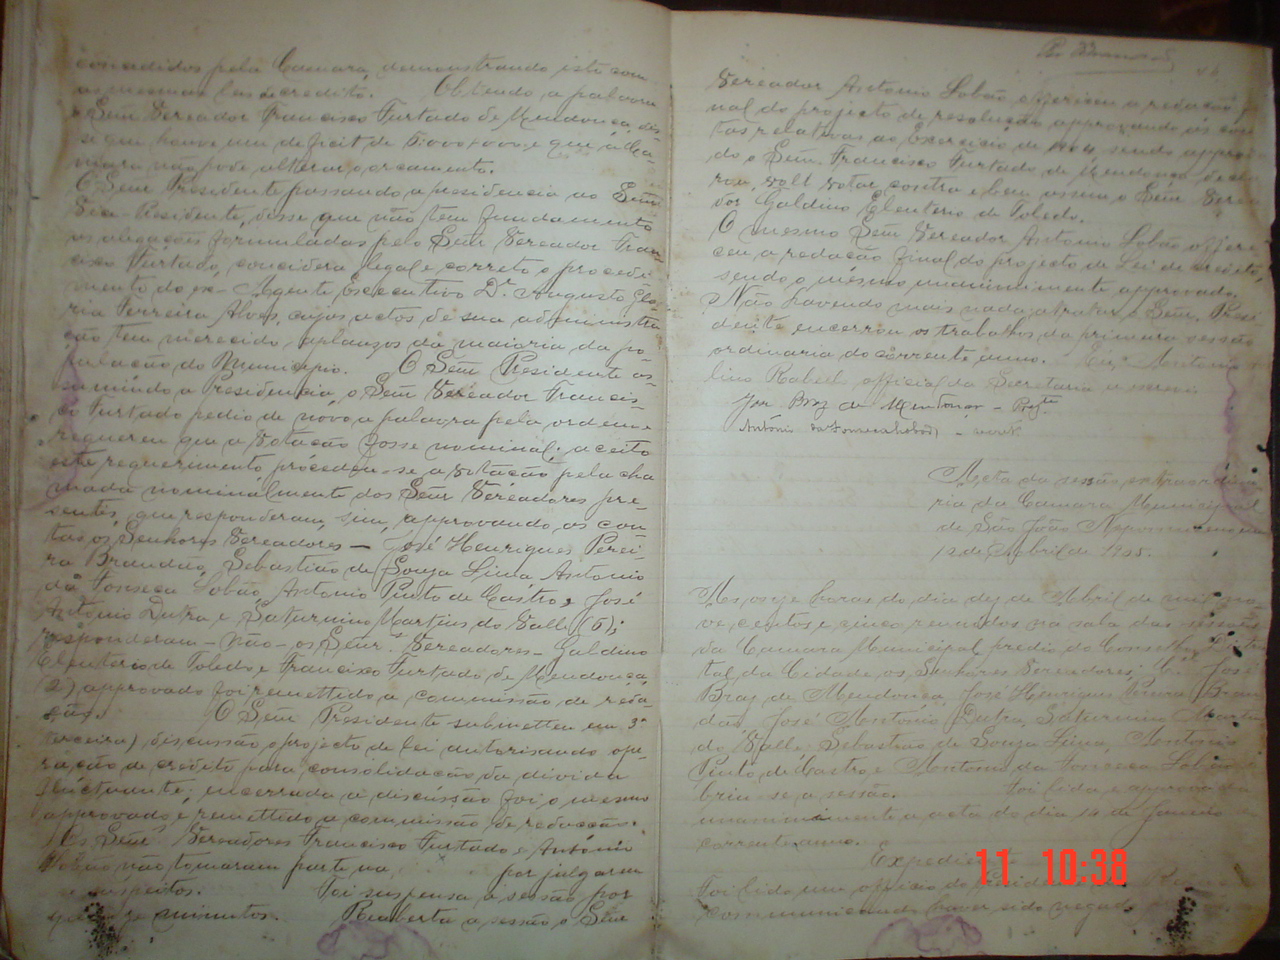 concedidos pela Camara, demonstrando isto com
credito. Obtendo a palavra
o Senr Vereador Francisco Furtado de Mendonça, dis-
se que houve um deficit de e que a Ca-
mara não pode alterar o orcamento.
O Senr Presidente passando a presidencia ao Senr
Vice-Presidente, disse que não tem fundamento
as alegações formuladas pelo Senr Vereador Fran-
cisco Furtado, concidera legal e correto o procedi-
mento do ex-Agente Executivo Dr. Augusto Glo-
ria Ferreira Alves, cujos actos de sua administra
ção tem merecido aplauzos da maioria da po-
pulação do Municipio. O Senr Presidente as-
sumindo a Presidencia, o Senr Vereador Francis-
co Furtado pedio de novo a palavra pela ordem e
requereu que a votação fosse nominal; aceito
este requerimento procedeu-se a votação pela cha
mada nominalmente dos Senr Vereadores pre-
sentes, que responderam, sim, approvando, as con-
tas os Senhores Vereadores - José Henriques Perei-
ra Brandão, Sebastião de Souza Lima, Antonio
da Fonseca Lobão, Antonio Pinto de Castro, José
Antonio Dutra e Saturnino Martins do Valle (6);
responderam - não - os Senr. Vereadores - Galdino
Eleuterio de Toledo e Francisco Furtado de Mendonça
(2) approvado foi remettido a commissão de reda-
ção. O Senr Presidente submetteu em 3ª
terceira) discussão o projecto de lei autorisando ope-
ração de credito para consolidação da divida
fluctuante; encerrada a discussão foi o mesmo
approvado e remettido a commissão de redacção.
Os Senr Vereadores Francisco Furtado e Antonio
Lobão não tomaram parte na por julgarem
suspeitos. Foi suspensa a sessão por
quinze minutos. Reaberta a sessão o Senr
Vereador Antonio Lobão offereceu a redação fi-
nal do projecto de resolução approvando as con-
tas relativas ao Exercicio de 1904, sendo approva-
do o Senr. Francisco Furtado de Mendonça decla-
rou votar contra e bem assim o Senr Verea-
dor Galdino Eleuterio de Toledo.
O mesmo Senr Vereador Antonio Lobão offere-
ceu a redação final do projecto de Lei de credito,
sendo o mesmo unanimimente approvado.
Não havendo mais nada a tratar o Senr. Presi-
dente encerrou os trabalhos da primeira sessão
ordinaria do corrente anno. Eu,
lino Rabell, official da Secretaria o escrevi
José Braz de Mendonça - Prezte
Antônio da Fonseca Lobão
Acta da sessão extraordina-
ria da Camara Municipal
de São João Nepomuceno em
de Abril de 1905.
As onze horas do dia dez de Abril de mil no-
ve centos e cinco reunidos na sala das sessões
da Camara Municipal predio do Conselho
tal da Cidade os Senhores Vereadores, José
Braz de Mendonça, José Henriques Pereira Bran-
dão, José Antonio Dutra, Saturnino Martins
do Valle, Sebastião de Souza Lima, Antonio
Pinto de Castro e Antonio da Fonseca Lobão
briu-se a sessão. Foi lida e approvada
unanimimente a acta do dia 14 de Janeiro
corrente anno.
Expediente
Foi lido um officio do
communicando haver sido negado
11 10:38